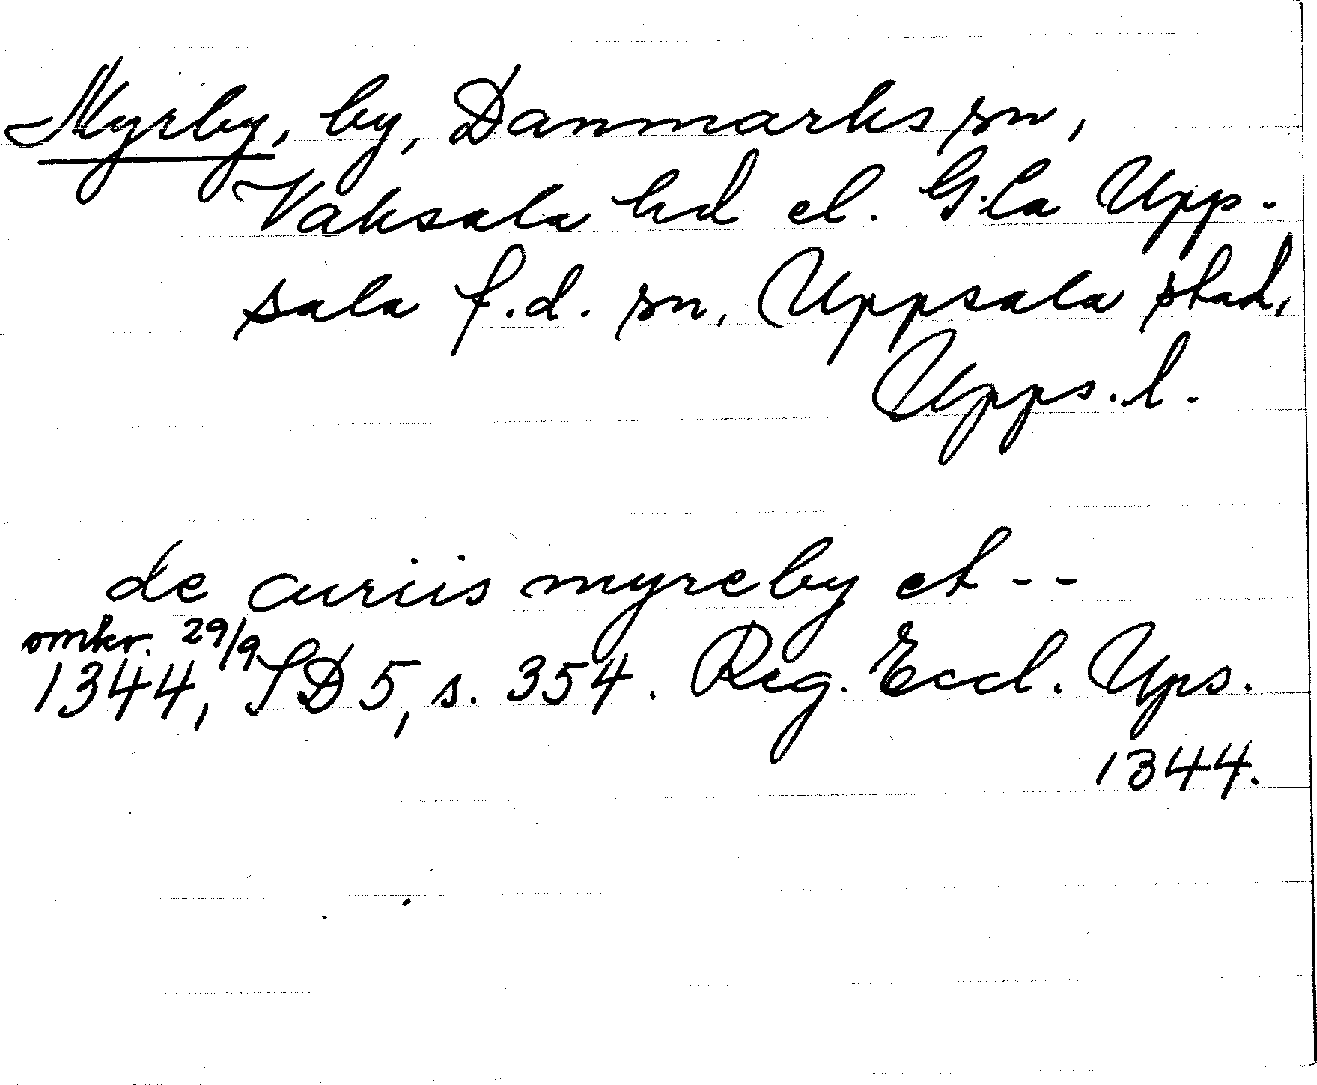 Myrby, by, Danmarks sn,
Vaksala hd el. G:la Upp-
sala f.d. sn, Uppsala stad,
Upps. l.
de curiis myreby et --
omkr. 29/9
1344, SD 5, s. 354. Reg. Eccl. Ups.
1344.